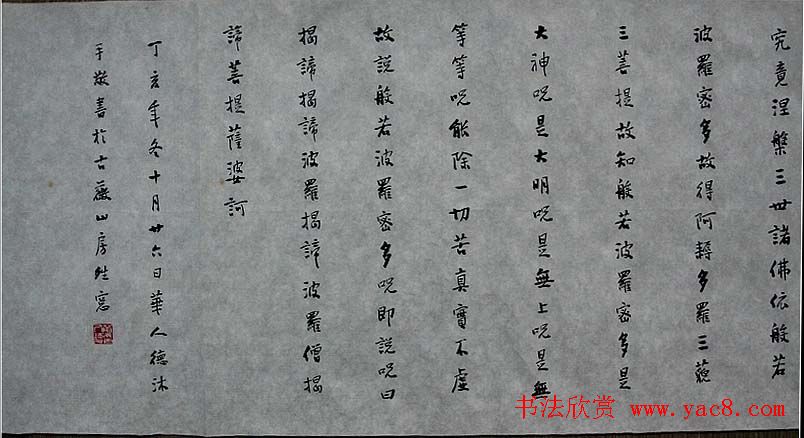 究竟涅槃三世諸佛依般若
波羅密多故得阿耨多羅三藐
三菩提故知般若波羅密多是
大神呪是大明呪是無上呪是無
等等呪能除一切苦真實不虛
故説般若波羅密多呪即説呪曰
揭諦揭諦波羅揭諦波羅僧揭
諦菩提薩婆訶
丁亥年冬十月廿六日華人德沐
手敬書於古薇山房
书法欣赏 www.yac8.com